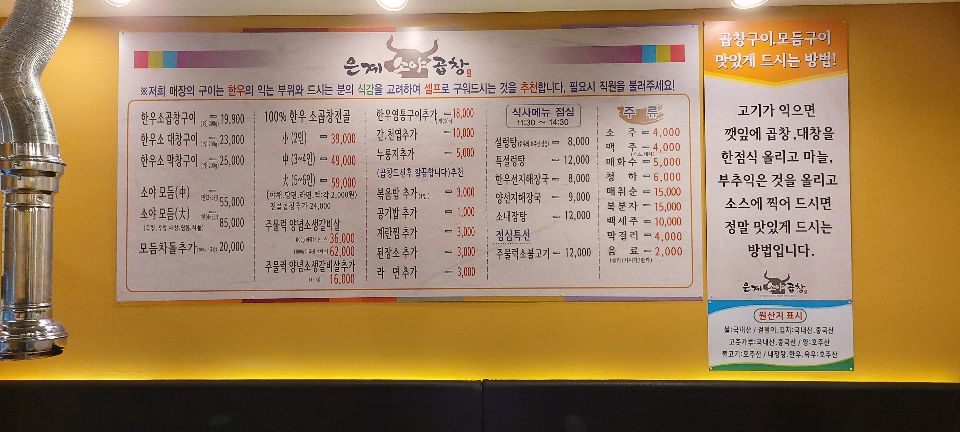 은계 소야 곱창
※저희 매장의 구이는 한우의 익는 부위와 드시는 분의 식감을 고려하여 셀프로 구워드시는 것을 추천합니다, 필요시 직원을 불러주세요!
한우소곱창구이 19,900
한우소 대창구이 23,000
한우소 막창구이 25,000
소야 모듬(中) 55,000
소야 모듬(大) 85,000
모듬차돌추가 20,000
100% 한우 소곱창전골
小 (2인) 39,000
中 (3~4인) 49,000
大 (5~6인) 59,000
주물럭 양념소생갈비살
36,000
62,000
주물럭 양념소생갈비살추가
16,000
한우염통구이추가 18,000
간, 천엽추가 10,000
누룽지추가 5,000
(곱창드신후 깔끔합니다)추천
볶음밥 추가 3,000
공기밥 추가 1,000
계란찜 추가 3,000
된장소 추가 3,000
라 면추가 3,000
식사메뉴 점심
11:30 ~ 14:30
설렁탕 8,000
특설렁탕 12,000
한우선지해장국 8,000
양선지해장국 9,000
소내장탕 12,000
점심특선
주물럭소불고기 12,000
주 류
소 주 4,000
맥 주 4,000
매화수 5,000
청 하 6,000
매취순 15,000
복분자 15,000
백세주 10,000
막걸리 4,000
음 료 2,000
곱창구이.모듬구이
맛있게 드시는 방법!
고기가 익으면
깻잎에 곱창,대창을
한점식 올리고 마늘,
부추익은 것을 올리고
소스에 찍어 드시면
정말 맛있게 드시는
방법입니다.
은계 소야 곱창
원산지 표시
쌀:국내산 / 겉절이,김치:국내산.중국산
고춧가루:국내산.중국산 / 양:호주산
불고기:호주산 / 내장탕:한우.육우:호주산